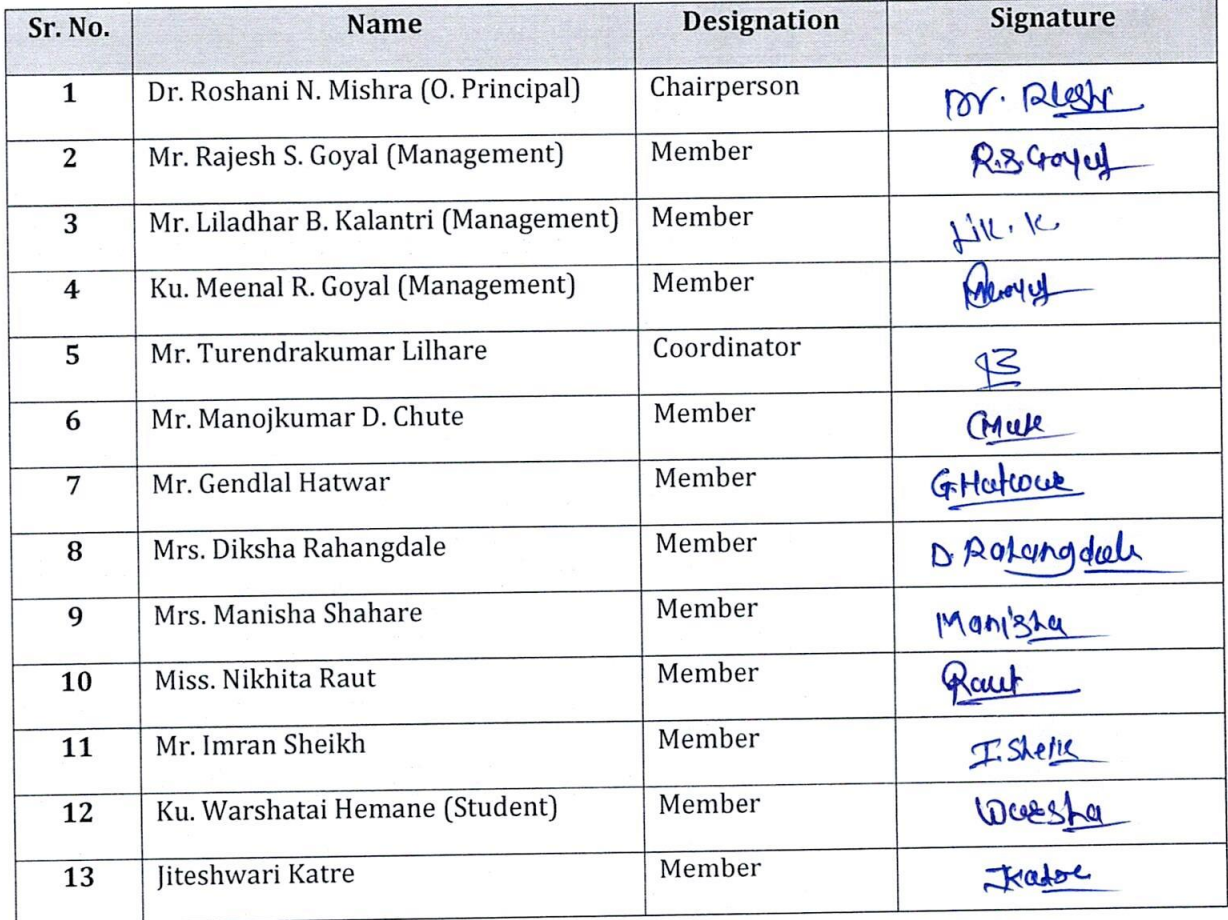 Sr. No. Name Designation Signature
1 Dr. Roshani N. Mishra (O. Principal) Chairperson Dr.
2 Mr. Rajesh S. Goyal (Management) Member R.S. Goyal
3 Mr. Liladhar B. Kalantri (Management) Member Lik. K.
4 Ku. Meenal R. Goyal (Management) Member
5 Mr. Turendrakumar Lilhare Coordinator
6 Mr. Manojkumar D. Chute Member
7 Mr. Gendlal Hatwar Member
8 Mrs. Diksha Rahangdale Member D. Rahangdale
9 Mrs. Manisha Shahare Member Manisha
10 Miss. Nikhita Raut Member Raut
11 Mr. Imran Sheikh Member
12 Ku. Warshatai Hemane (Student) Member Warsha
13 Jiteshwari Katre Member JKatre